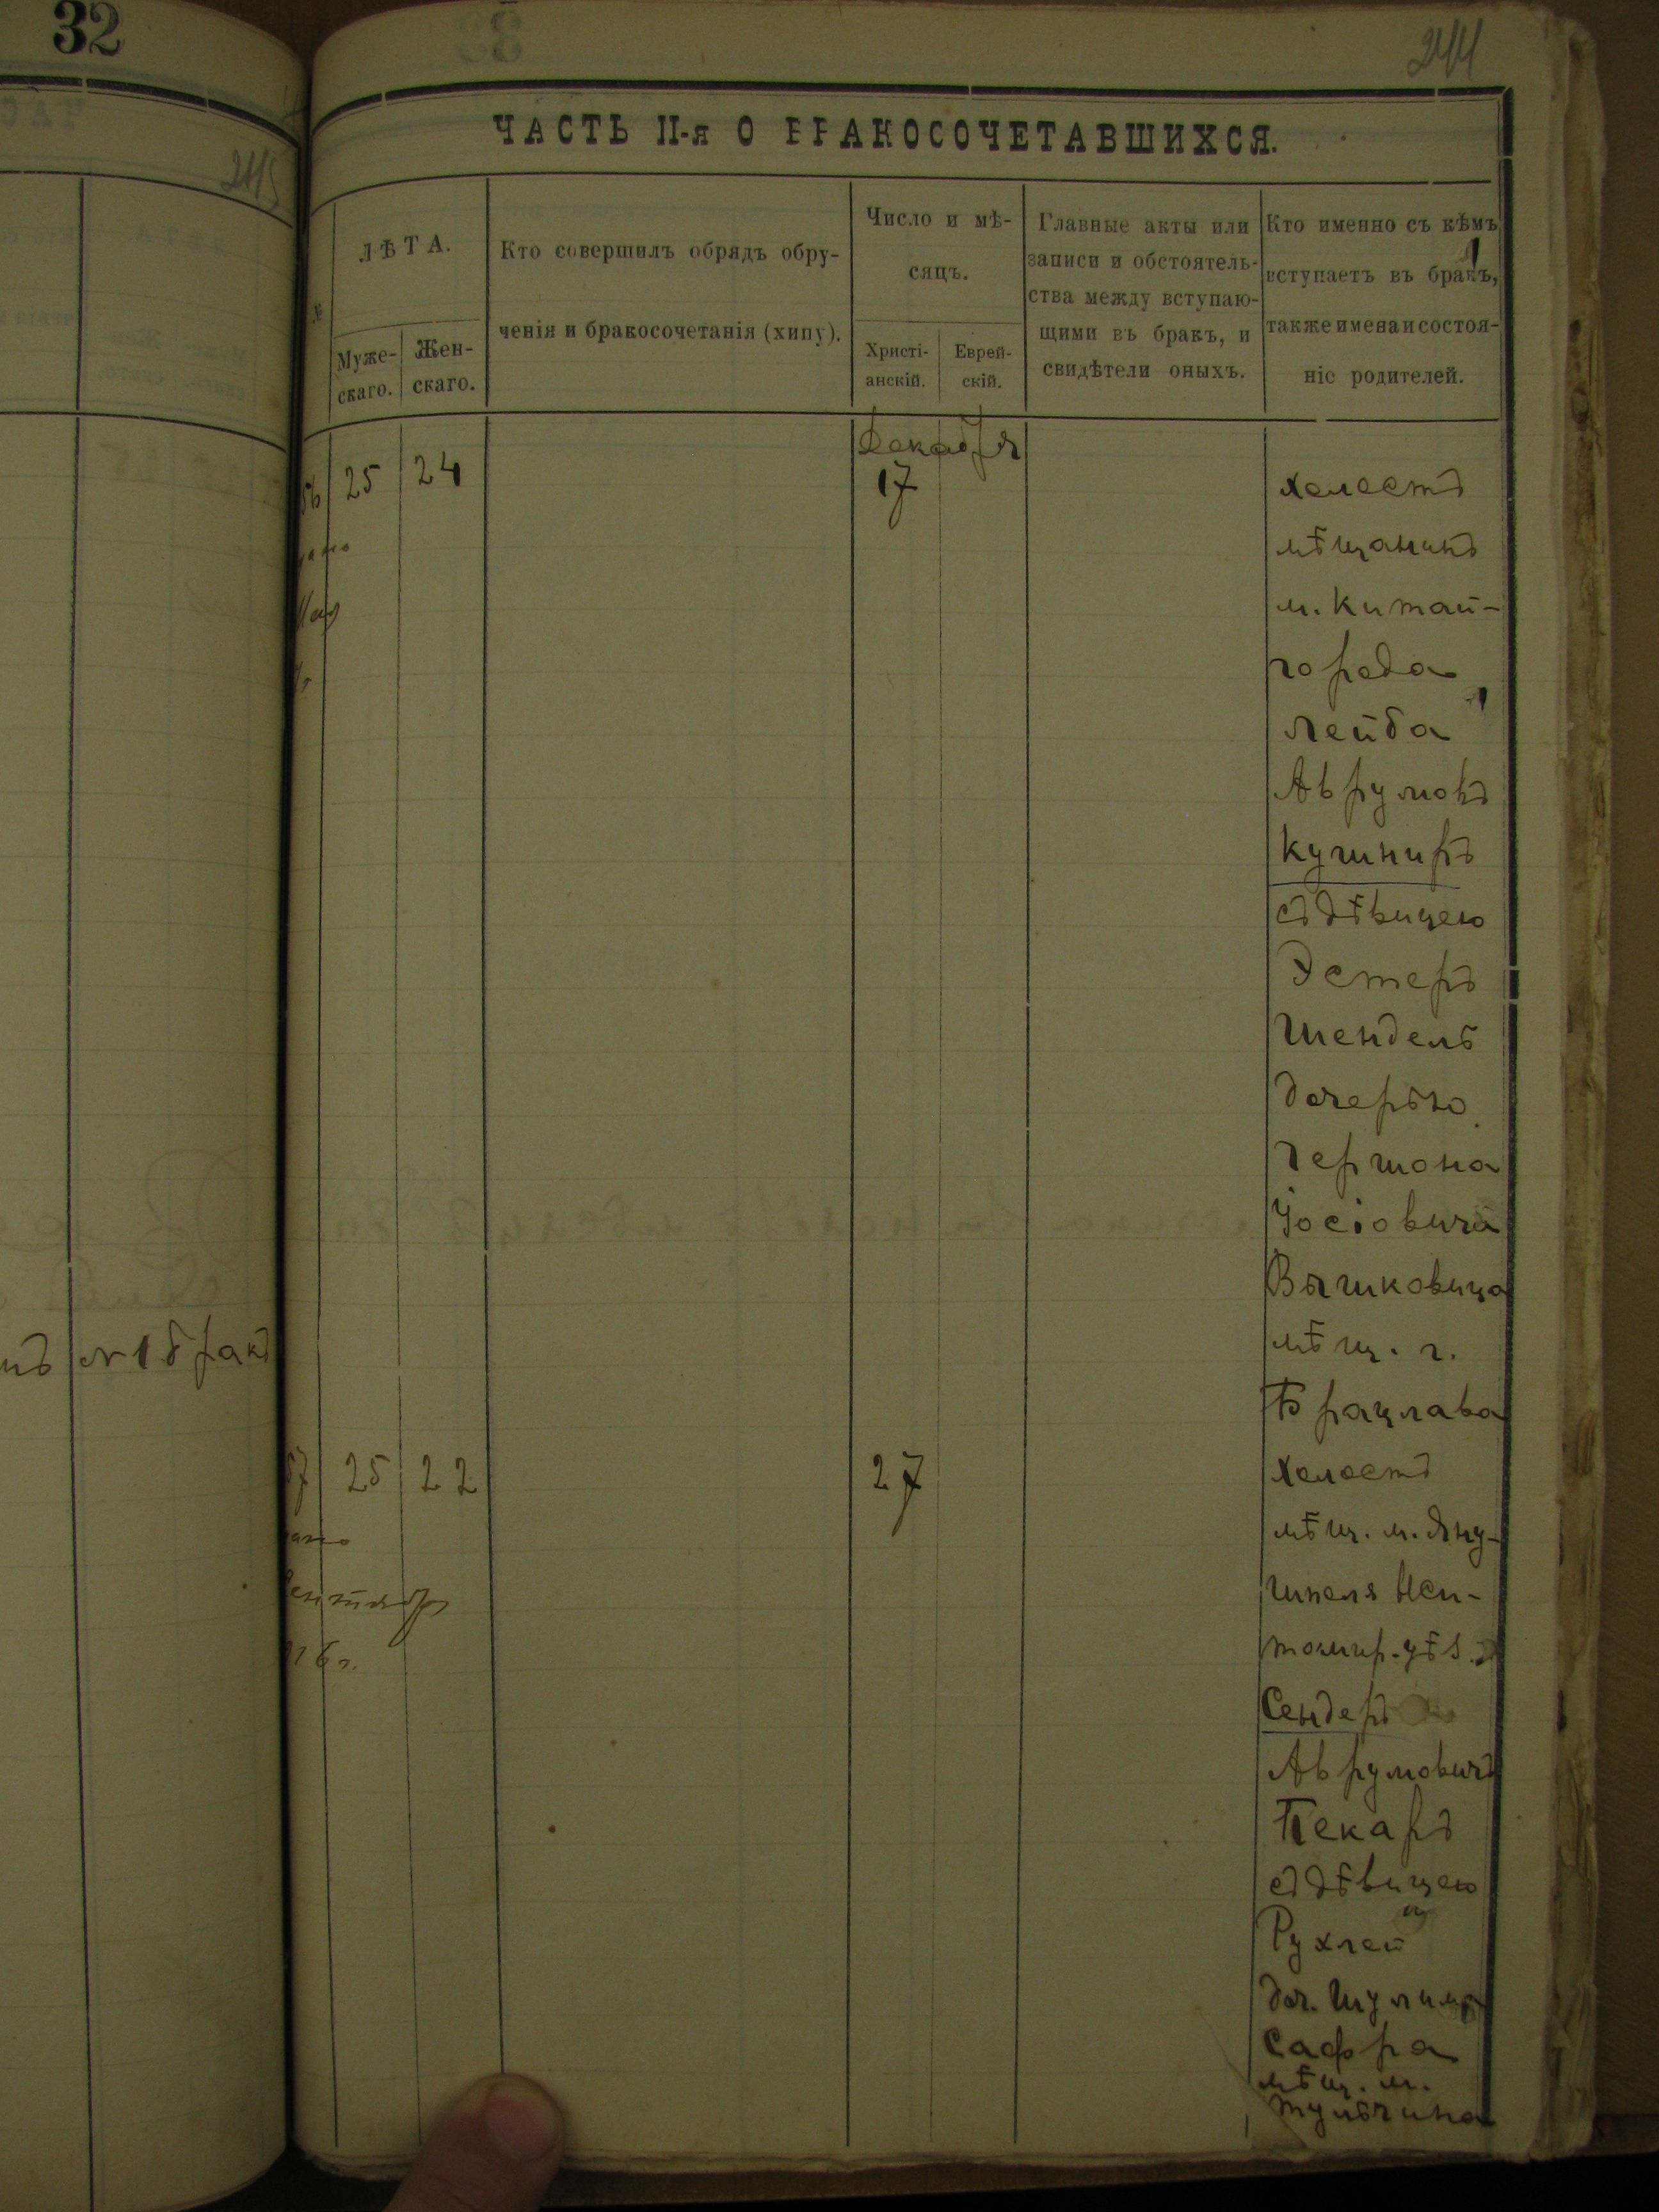 32
244
245
ЧАСТЬ II-я О БРАКОСОЧЕТАВШИХСЯ.
№
ЛѢТА.
Муже-
скаго.
Жен-
скаго.
Кто совершилъ обрядъ обру-
ченія и бракосочетанія (хипу).
Число и мѣ-
сяцъ.
Христі-
анскій.
Еврей-
скій.
Главные акты или
записи и обстоятель-
ства между вступаю-
щими въ бракъ, и
свидѣтели оныхъ.
Кто именно съ кѣмъ
вступаетъ въ бракъ,
также имена и состоя-
ніе родителей.
56 25 24
Декабря
17
холостъ
мѣщанинъ
м. Китай-
города
Лейба
Аврумовъ
Кушниръ
съ дѣвицею
Эстеръ
Шендель
дочерью
Гершона
Іосіовича
Вячковица
мѣщ. г.
Брацлава
№ 18 бракъ
57 25 22
27
холостъ
мѣщ. м. Яну-
шполя Жи-
томир. уѣз.
Сендеръ
Аврумовичъ
Пекаръ
съ дѣвицею
Рухлей
доч. Шулима
Сафра
мѣщ. м.
Тульчина